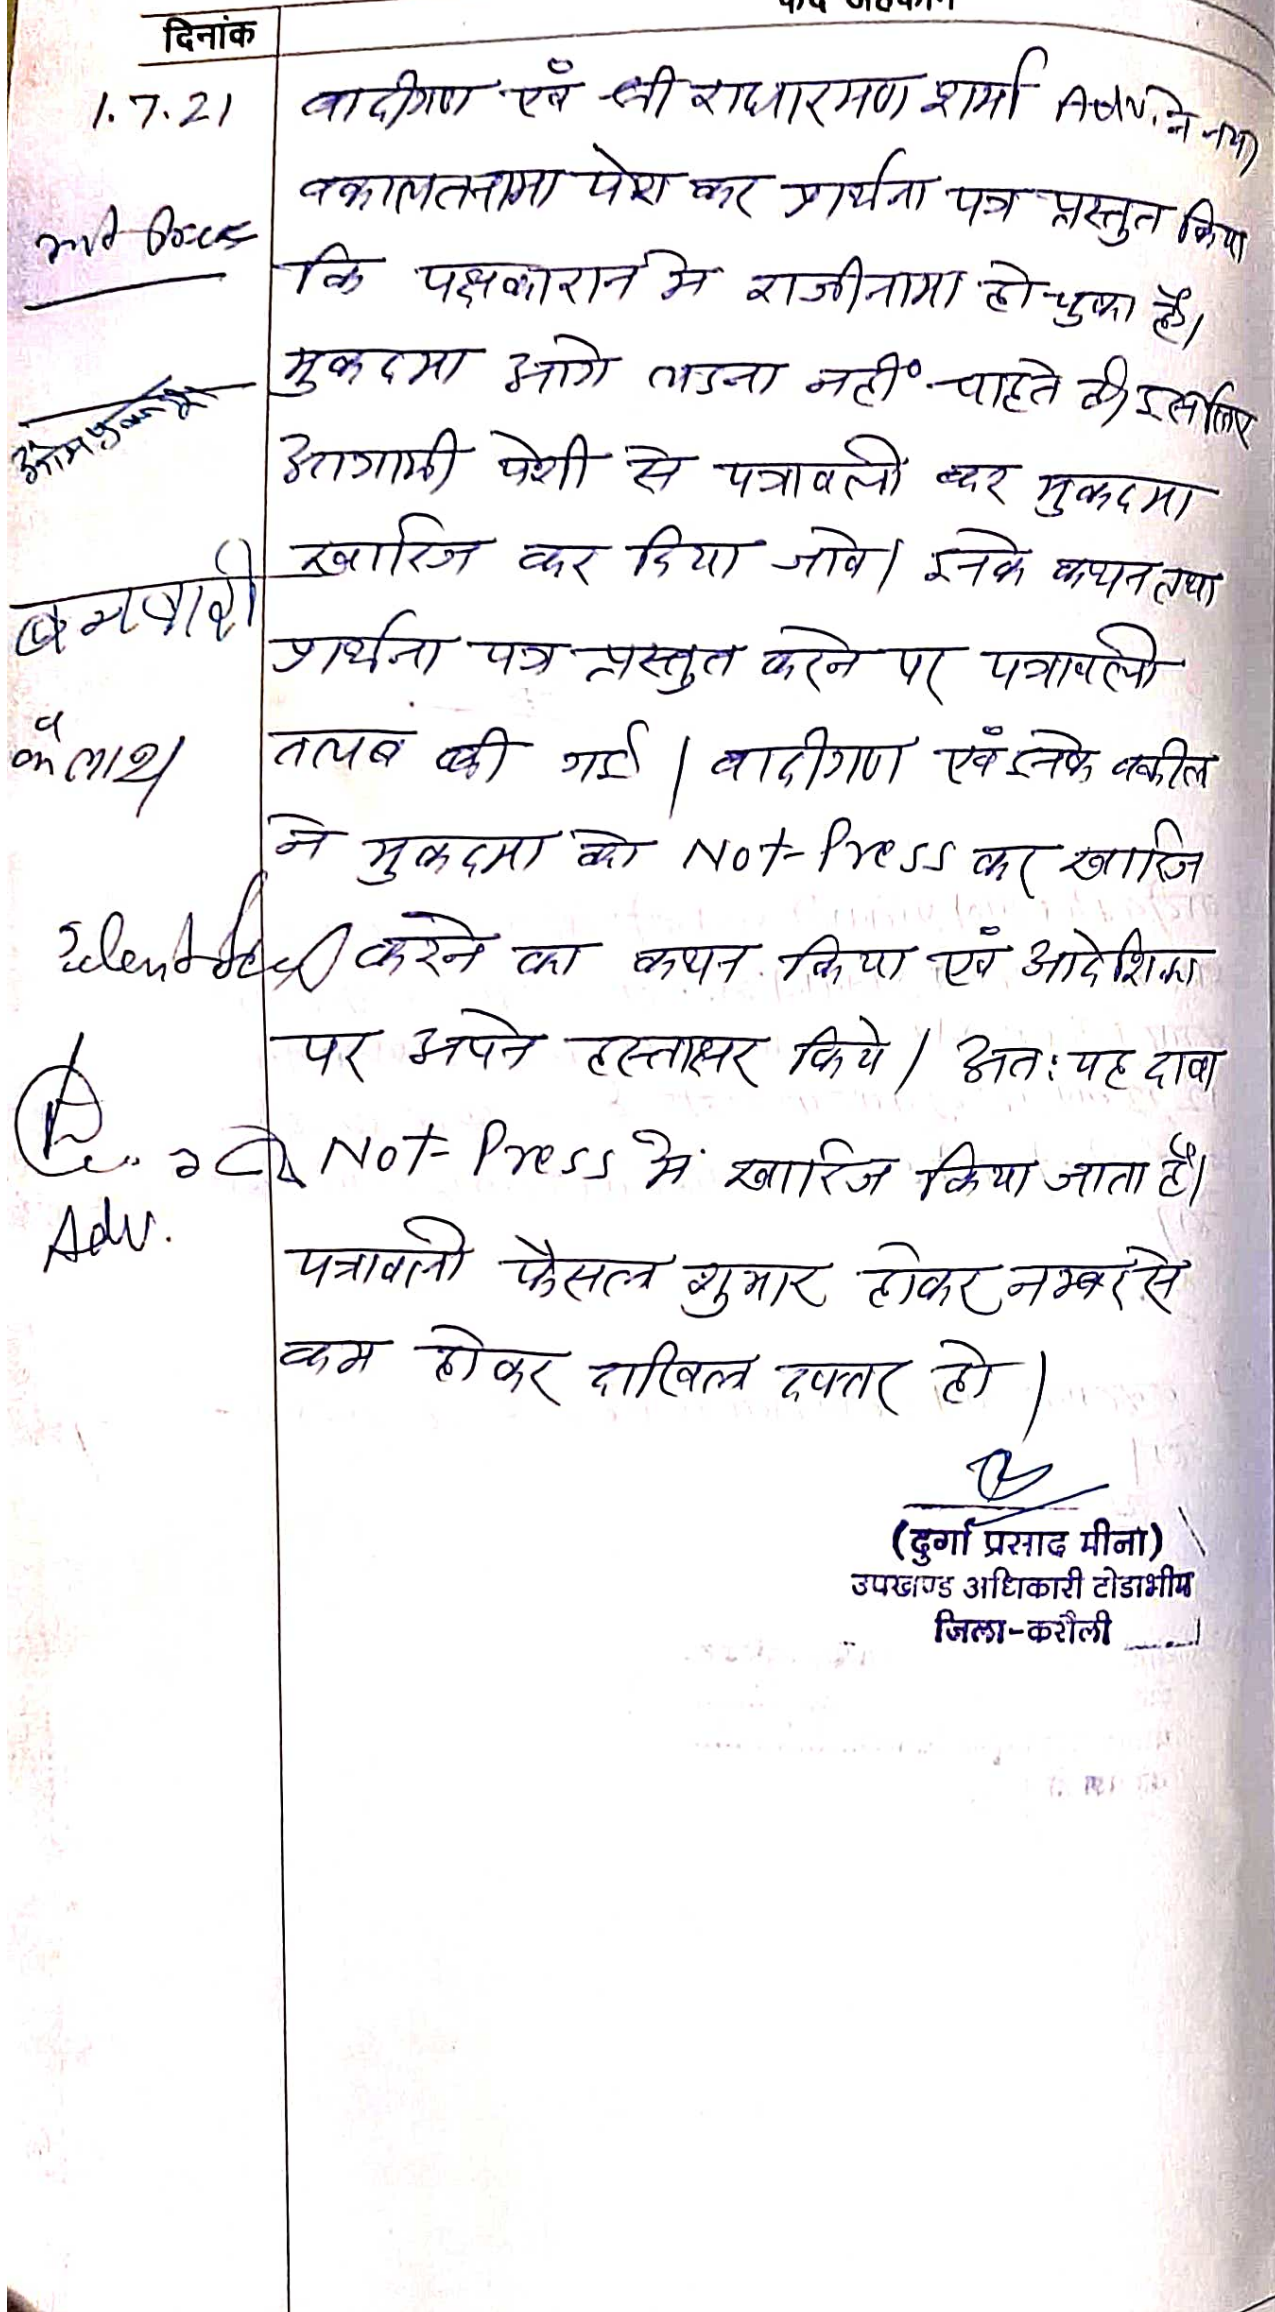 दिनांक
1.7.21
वादीगण एवं श्री राधारमण शर्मा Adv. ने नया
वकालतनामा पेश कर प्रार्थना पत्र प्रस्तुत किया
कि पक्षकारान मे राजीनामा हो चुका है।
मुकदमा आगे लडना नहीं चाहते है। इसलिए
आगामी पेशी से पत्रावली मुकदमा
खारिज कर दिया जावे। इनके कथन तथा
प्रार्थना पत्र प्रस्तुत करने पर पत्रावली
तलब की गई। वादीगण एवं इनके वकील
ने मुकदमा को Not-Press कर खारिज
करने का कथन किया एवं आदेशिका
पर अपने हस्ताक्षर किये। अत: यह दावा
Not-Press में खारिज किया जाता है।
पत्रावली फैसल शुमार होकर नम्बर से
कम होकर दाखिल दफ्तर हो।
बनवारी
कैलाश
Adv.
(दुर्गा प्रसाद मीना)
उपखण्ड अधिकारी टोडाभीम
जिला-करौली